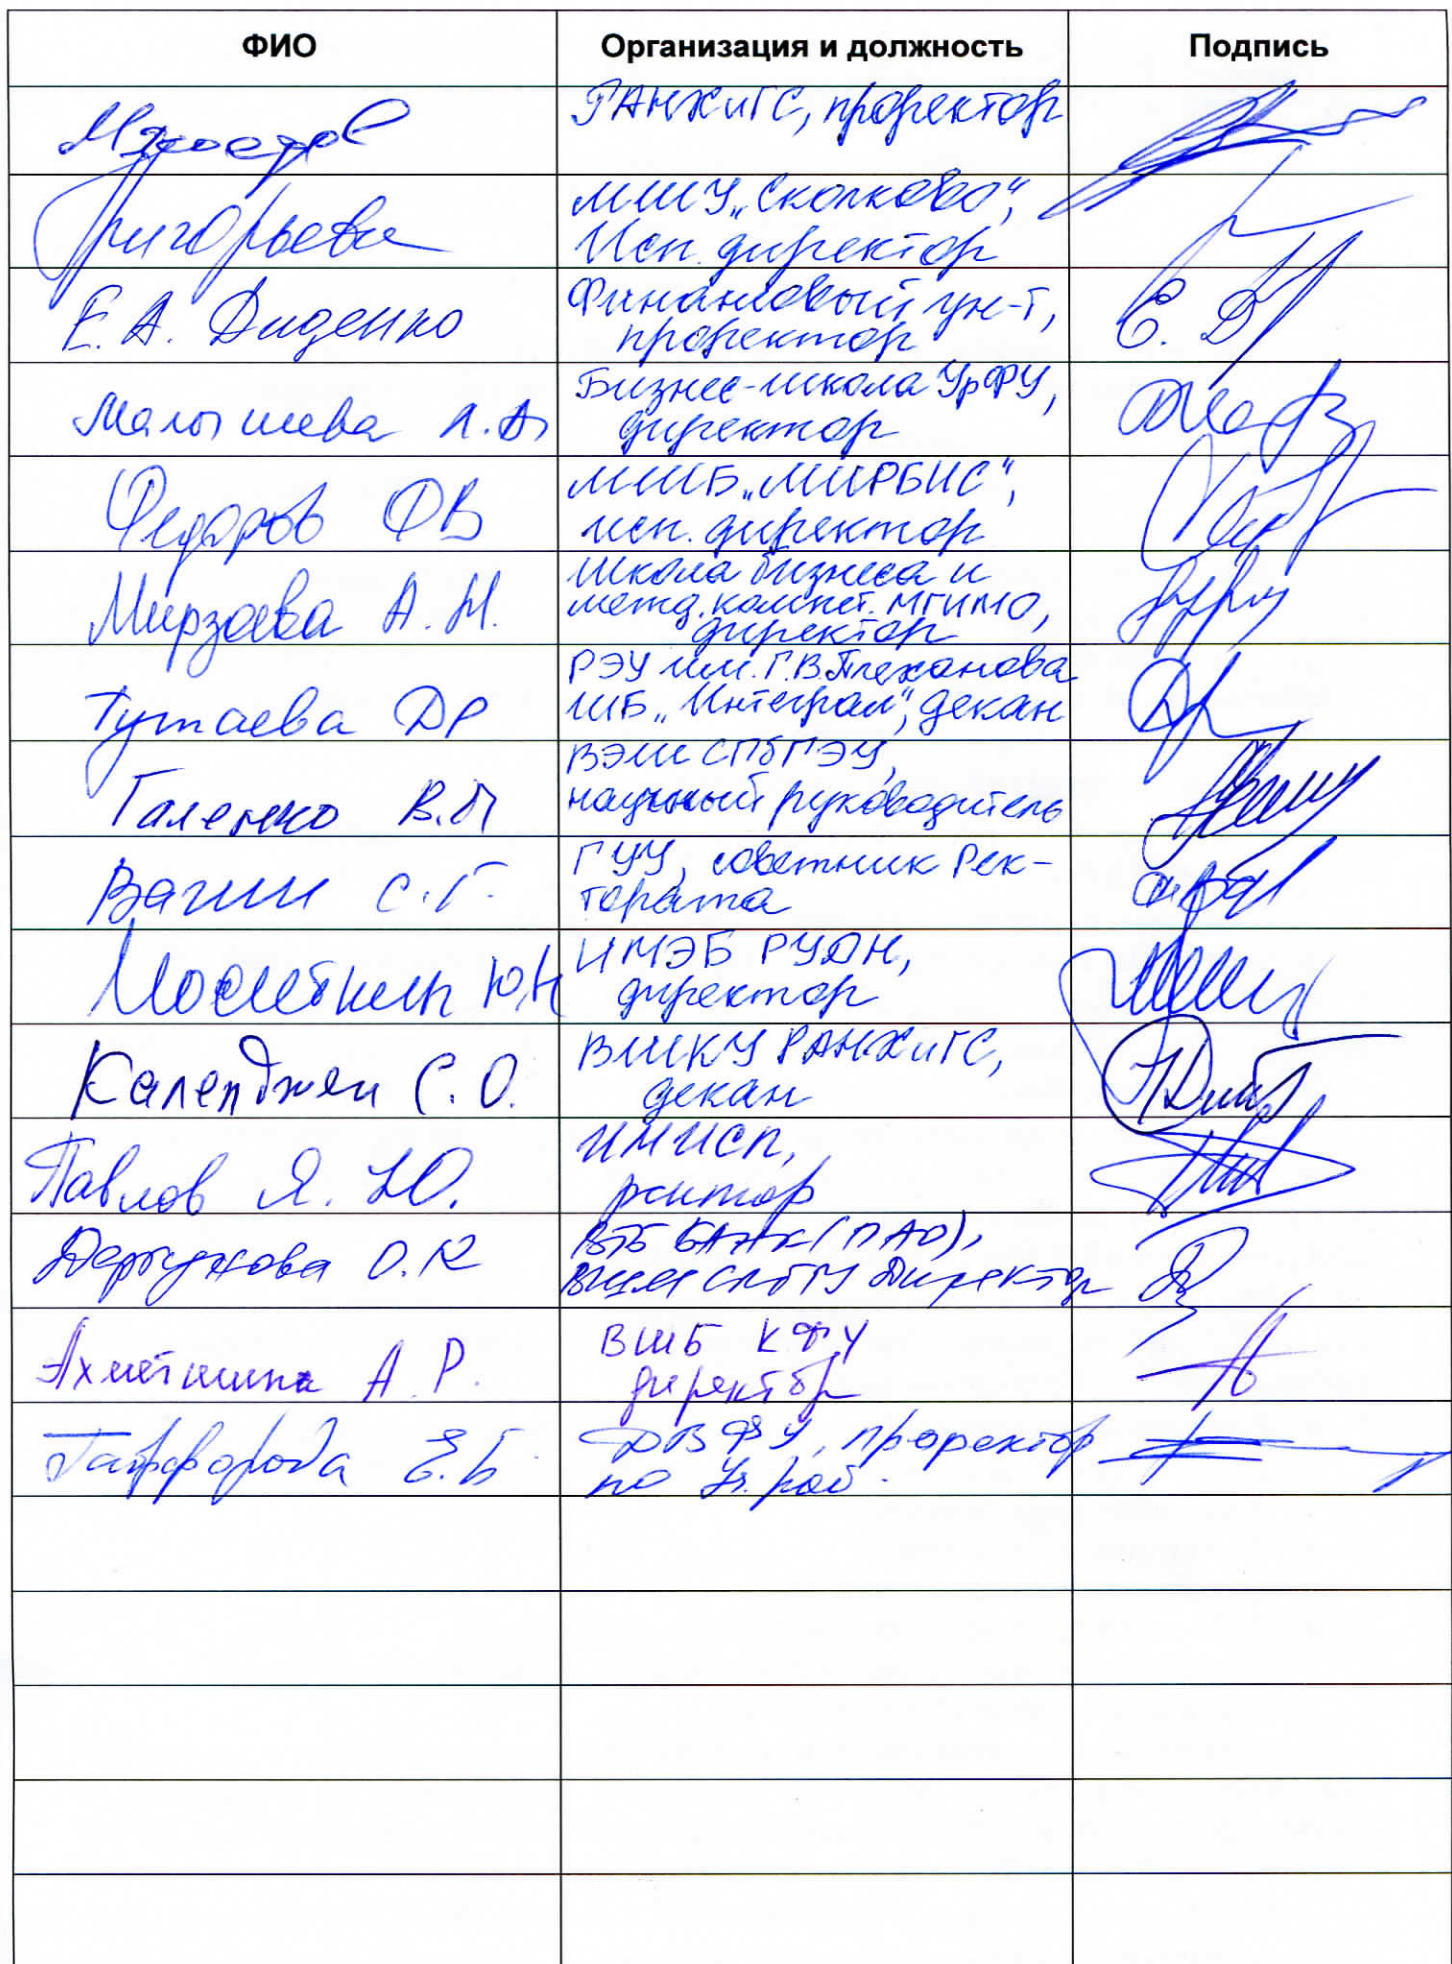 ФИО Организация и должность Подпись
РАНХиГС, проректор
Григорьева
МШУ „Сколково",
Исп. директор
Е. А. Диденко
Финансовый ун-т,
проректор
Е. Д
Малышева Л.А
Бизнес-школа УрФУ,
директор
Федоров ФВ
МШБ „МИРБИС",
исп. директор
Мирзоева А. М.
Школа бизнеса и
межд. компет. МГИМО,
директор
Тутаева ДР
РЭУ им. Г.В. Плеханова
ШБ „Интеграл", декан
Галенко В.П
ВЭШ СПбГЭУ,
научный руководитель
Вагин С.Г.
ГУУ, советник Рек-
тората
Мосейкин Ю.Н
ИМЭБ РУДН,
директор
Календжян С.О.
ВШКУ РАНХиГС,
декан
Павлов Я. Ю.
ИМИСП,
ректор
Дергунова О.К
ВТБ БАНК (ПАО),
ВШМ СПбГУ Директор
Ахметшина А. Р.
ВШБ КФУ
директор
Гаффорова Е.Б.
ДВФУ, проректор
по уч. раб.